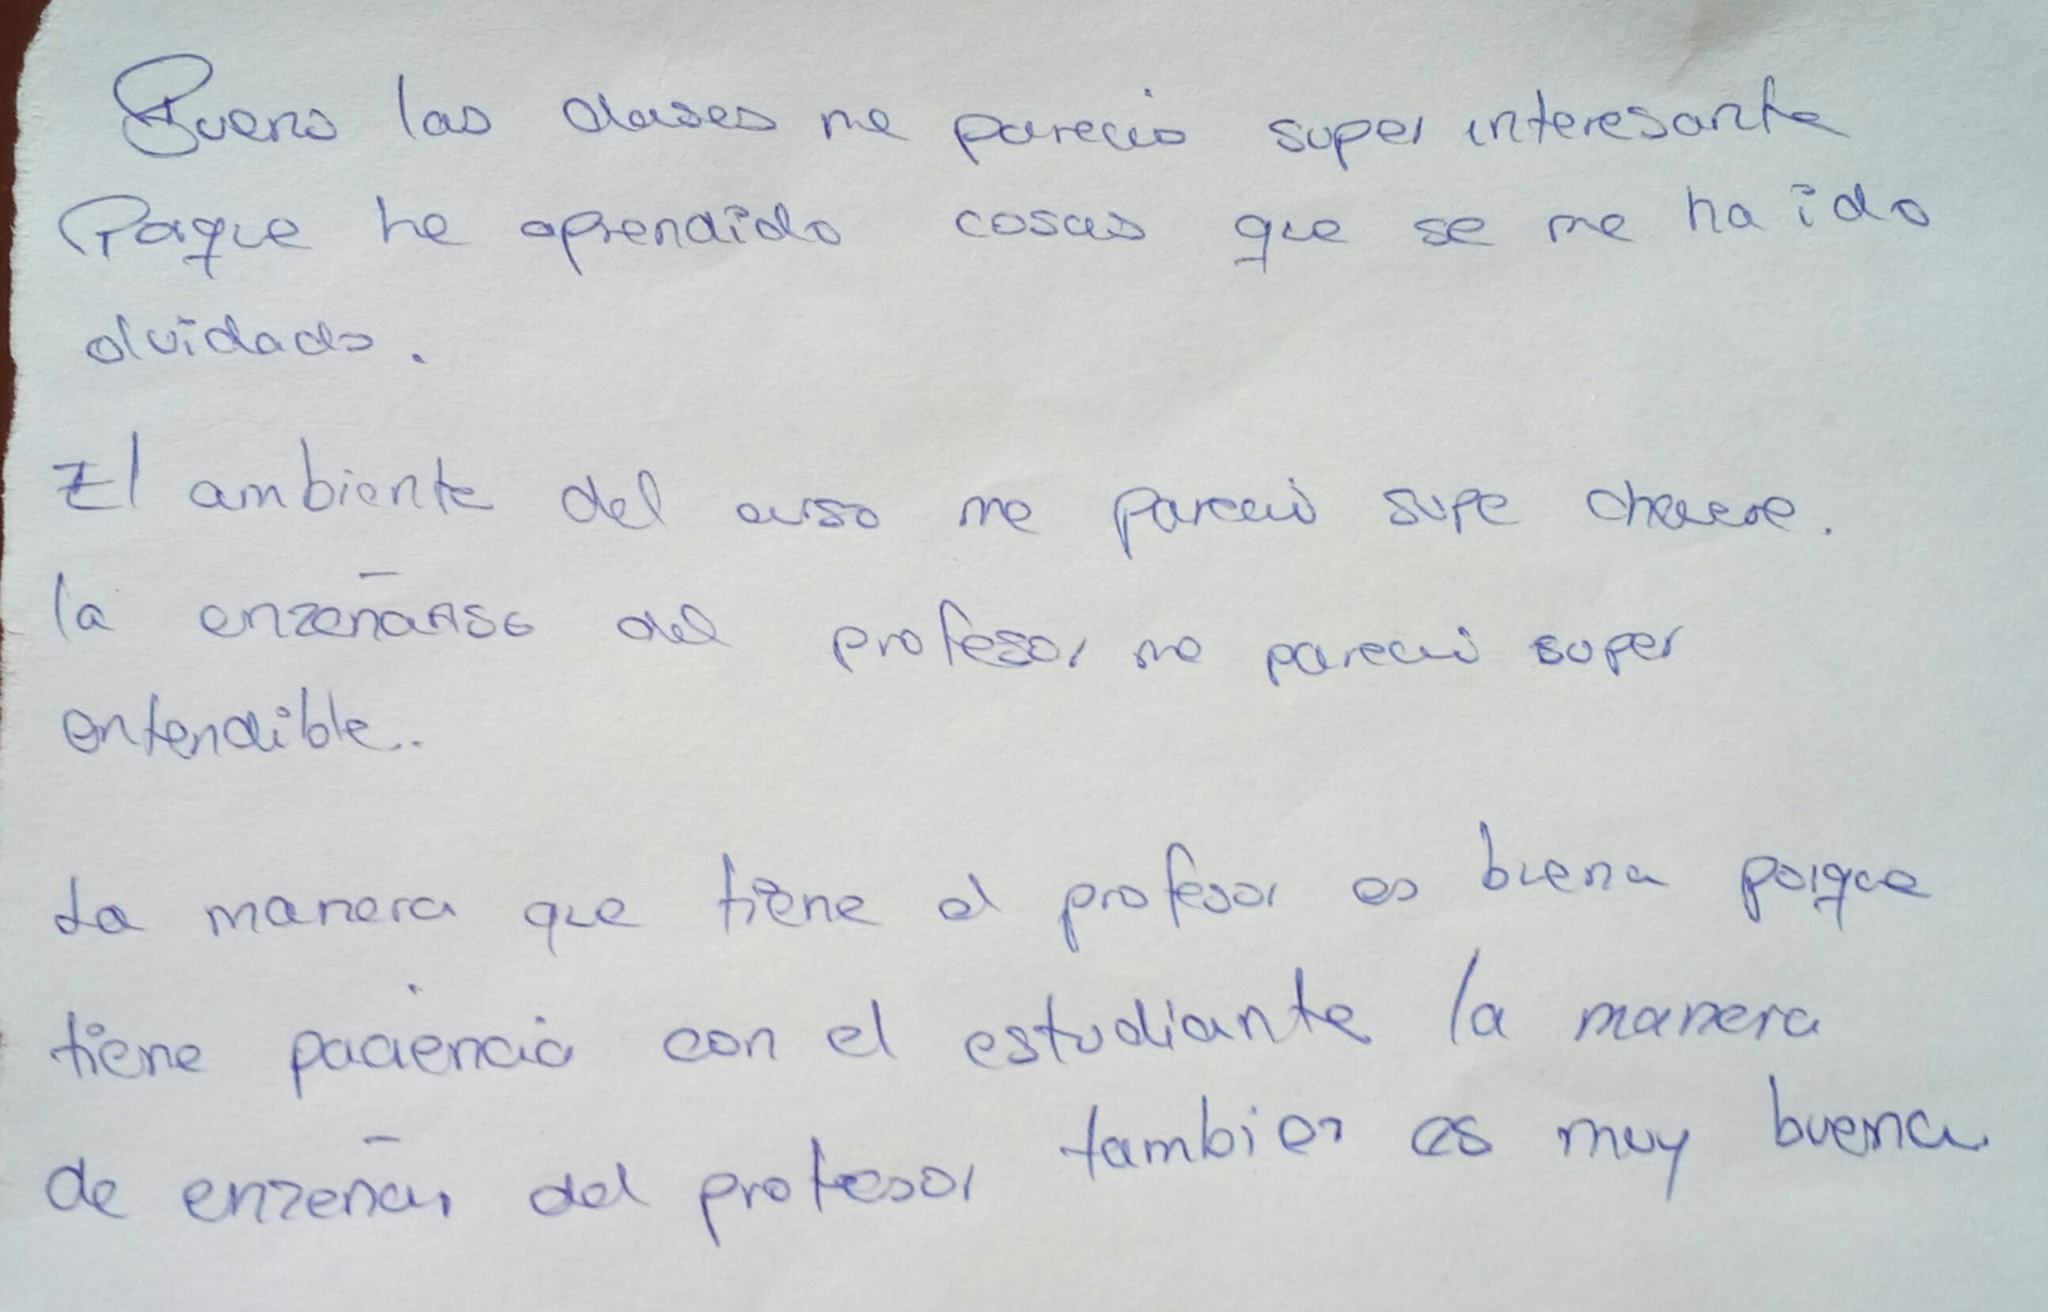 Bueno las clases me parecio super interesante
Porque he aprendido cosas que se me ha ido
olvidado.
El ambiente del curso me pareció supe chevere.
la enzeñansa del profesor me pareció super
entendible.
La manera que tiene el profesor es buena porque
tiene paciencia con el estudiante la manera
de enzeñar del profesor tambien es muy buena